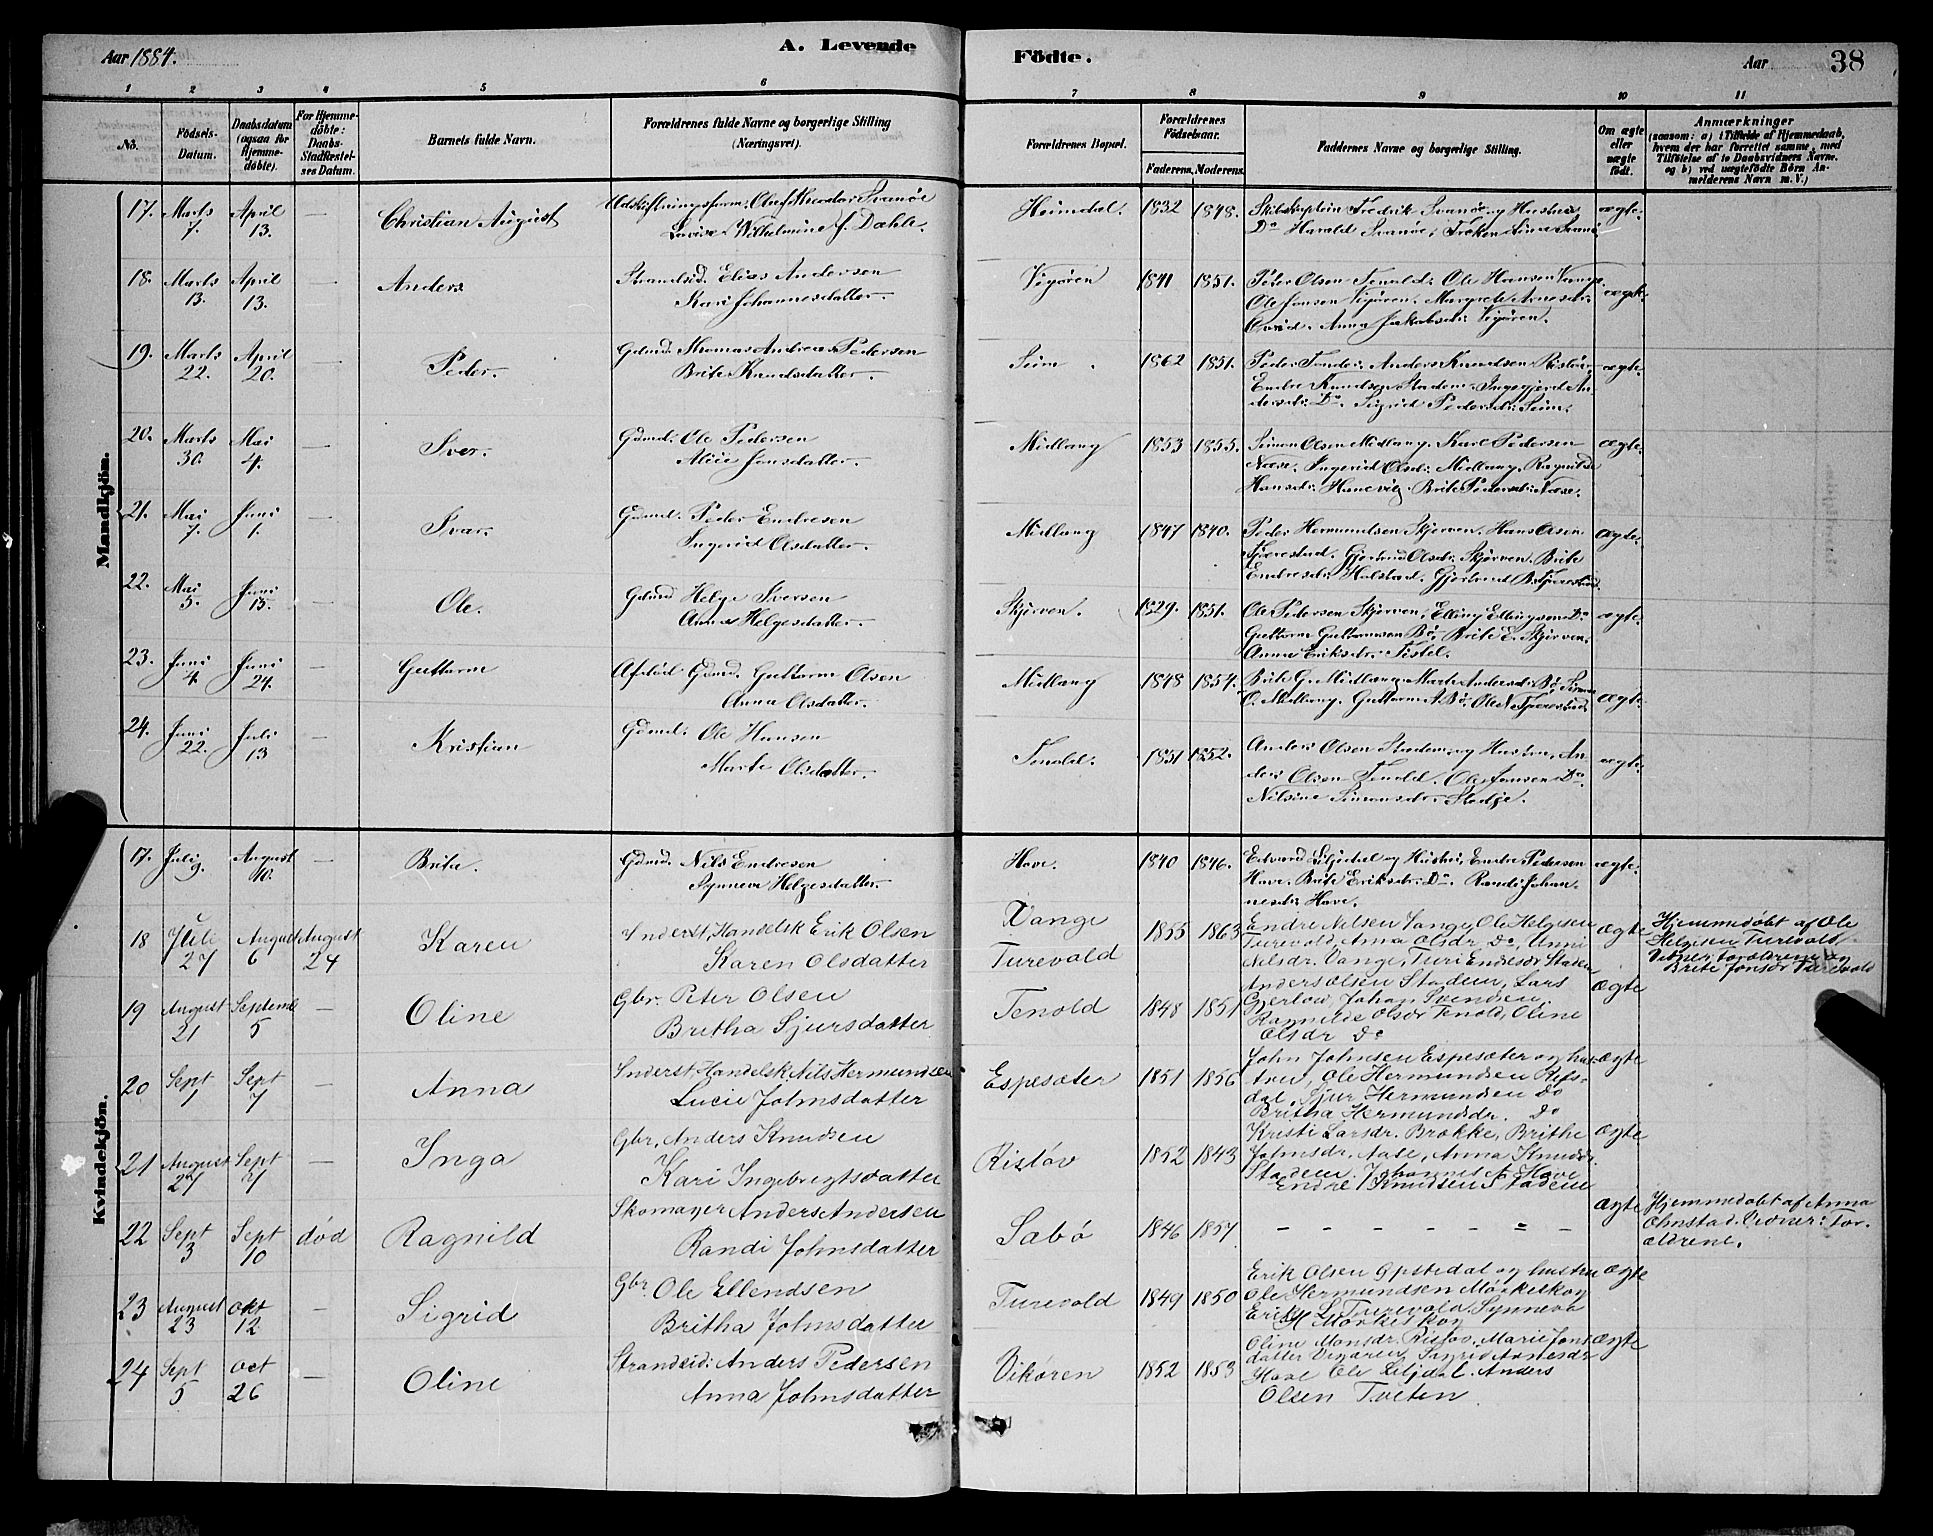 Aar 1884.
A. Levende
Födte.
Aar
38
1 2 3 4 5 6 7 8 9 10 11
No.
Födsels-Datum.
Daabsdatum (ogsaa for Hjemme-döbte).
For Hjemme-döbte: Daabs-Stadfæstel-ses Datum.
Barnets fulde Navn.
Forældrenes fulde Navne og borgerlige Stilling (Næringsvei).
Forældrenes Bopæl.
Forældrenes Födselsaar.
Faderens. Moderens.
Faddernes Navne og borgerlige Stilling.
Om ægte eller uægte födt.
Anmærkninger
(saasom: a) i Tilfælde af Hjemmedaab, hvem der har forrettet samme, med Tilföielse af to Daabsvidners Navne, og b) ved uægtefödte Börn Anmelderens Navn m. V.)
Mandkjön.
17. Marts 7. April 13. — Christian August
Svanöe
Lovise Wilhelmine f. Dahle.
Heimdal. 1832 1848.
Skibskaptein Fredrik Svanöe og Hustru,
Do Harald Svanöe; Fröken Anna Svanöe
ægte.
18. Marts 13. April 13. — Anders
Strandsid. Elias Andersen
Kari Johannesdatter.
Vigören 1841 1851.
Peder Olsen Tenold. Ole Hansen Vange.
Ole Jonsen Vigören. Margrete Arnesdr.
Anna Jakobsdr. Vigören.
ægte.
19. Marts 22. April 20. — Peder.
Gdmd. Thomas Andreas Pedersen
Brite Knudsdatter.
Seim. 1862 1851.
Peder Anders Knudsen Ristöv,
Endre Knudsen Stadem. Ingegjerd An-
dersdr. Do. Sigrid Pedersdr. Seim.
ægte.
20. Marts 30. Mai 4. — Iver.
Gdmd. Ole Pedersen
Alice Jonsdatter.
Midlang 1853 1855.
Simon Olsen Midlang. Karl Pedersen
Næse. Ingerid Olsdr. Midlang. Ragnilde
Hansdr. Hanevig. Brite Pedersdr. Næse.
ægte.
21. Mai 7. Juni 1. — Ivar.
Gdmd. Peder Endresen
Ingerid Olsdatter.
Midlang 1847 1840.
Peder Hermundsen Skjörven. Hans Olsen
Gjertrud Olsdr. Skjörven. Brite
Endresdr. Holstad.
ægte.
22. Mai 5. Juni 15. — Ole.
Gdmd Helge Iversen
Anna Helgesdatter.
Skjörven. 1829. 1851.
Ole Pedersen Skjörven, Elling Ellingsen Do
Guttorm Guttormsen Bö, Brite E. Skjörven.
Anna Eriksdr. Tistel.
ægte.
23. Juni 4. Juni 24. — Guttorm
Afdöd Gdmd. Guttorm Olsen
Anna Olsdatter.
Midlang 1848 1854.
Brite G. Midlang. Marte Andersdr. Bö. Simon
O. Midlang. Guttorm A. Bö.
ægte.
24. Juni 22. Juli 13 — Kristian
Gdmd. Ole Hansen
Marte Olsdatter.
Tenold. 1851 1852.
Anders Olsen Stadem og Hustru, An-
ders Olsen Tenold. Ole Jonsen Do.
Nilsine Simonsdr. Stedje.
ægte.
Kvindekjön.
17. Juli 9. August 10. — Brite.
Gdmd. Nils Endresen
Synneva Helgesdatter.
Hove. 1840 1846.
Edvard Liljedal og Hustru, Endre Pedersen
Hove. Brite Eriksdr. Do. Randi Johan-
nesdr. Hove.
ægte.
18 Juli 27 August 6 August 24 Karen
Inderst, Handelsk. Erik Olsen
Karen Olsdatter
Vange
Turevold
1855 1863
Endre Nilsen Vange, Ole Helgesen
Turevold, Anna Olsdr. Do, Unni
Nilsdr. Vange, Turi Endresdr. Stadem
ægte
Hjemmedøbt af Ole
Helgesen Turevold,
Vidner: Forældrene og
Brite Jonsdr Turevold
19 August 21 Septembe 5 — Oline
Gbr. Peter Olsen
Britha Sjursdatter
Tenold 1848 1851
Anders Olsen Stadem, Lars
Gjerløw, Johan Svendsen,
Ragnilde Olsdr Tenold, Oline
Olsdr Do
ægte
20 Sept 1 Sept 7 — Anna
Inderst Handelsk. Nils Hermundsen
Lucie Johnsdatter
Espesæter 1851 1856
John Johnsen Espesæter og hus-
tru, Ole Hermundsen Refs-
dal, Sjur Hermundsen Do
Britha Hermundsdr. Do
ægte
21 August 27 Sept 7 — Inga
Gbr. Anders Knudsen
Kari Ingebrigtsdatter
Risløv 1852 1843
Kristi Larsdr. Brække, Brithe
Johnsdr. Aase, Anna Knudsdr.
Stadem. Johannes A. Hove
Endre Knudsen Stadem
ægte
22 Sept 3 Sept 10 død Ragnild
Skomager Anders Andersen
Randi Johnsdatter
Sabø 1846 1857
– – – – – – –
ægte
Hjemmedøbt af Anna
Ohnstad. Vidner: For-
ældrene.
23 August 23 Okt 12 — Sigrid
Gbr. Ole Ellendsen
Britha Johnsdatter
Turevold 1849 1850
Erik Olsen Opstedal og hustru
Ole Hermundsen Mørkeskog
Erik L. Turevold, Synneva
H. Mørkeskog
ægte
24 Sept 5 Oct 26 — Oline
Strandsid: Anders Pedersen
Anna Johnsdatter
Vikøren 1852 1853
Oline Monsdr. Risløv, Marie Jons
datter Vigøren, Sigrid Arnesdr
Hove Ole Liljdal. Anders
Olsen Tveten
ægte